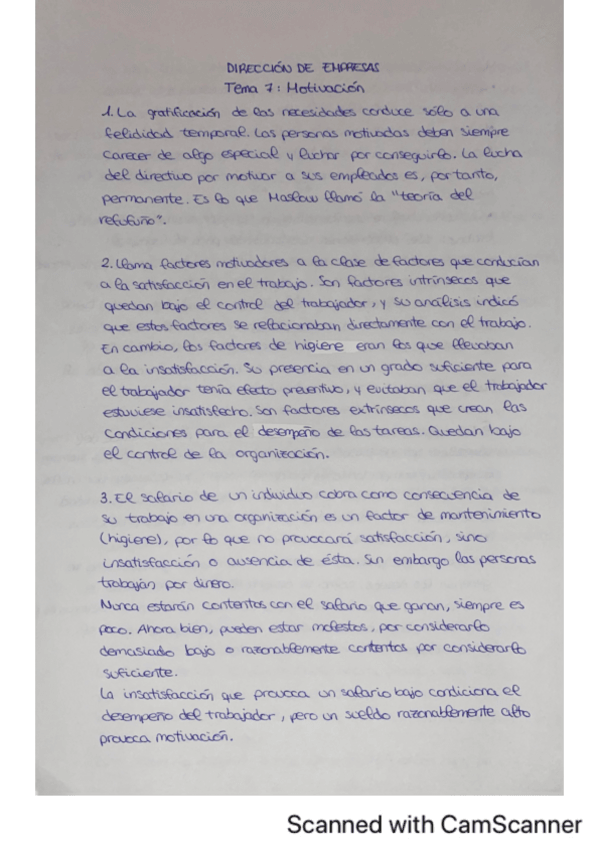 DIRECCIÓN DE EMPRESAS
Tema 7: Motivación
1. La gratificación de las necesidades conduce sólo a una
felicidad temporal. Las personas motivadas deben siempre
carecer de algo especial y luchar por conseguirlo. La lucha
del directivo por motivar a sus empleados es, por tanto,
permanente. Es lo que Maslow llamó la "teoría del
refufuño".
2. Llama factores motivadores a la clase de factores que conducían
a la satisfacción en el trabajo. Son factores intrínsecos que
quedan bajo el control del trabajador, y su análisis indicó
que estos factores se relacionaban directamente con el trabajo.
En cambio, los factores de higiene eran los que llevaban
a la insatisfacción. Su presencia en un grado suficiente para
el trabajador tenía efecto preventivo, y evitaban que el trabajador
estuviese insatisfecho. Son factores extrínsecos que crean las
condiciones para el desempeño de las tareas. Quedan bajo
el control de la organización.
3. El salario de un individuo cobra como consecuencia de
su trabajo en una organización es un factor de mantenimiento
(higiene), por lo que no provocará satisfacción, sino
insatisfacción o ausencia de ésta. Sin embargo las personas
trabajan por dinero.
Nunca estarán contentos con el salario que ganan, siempre es
poco. Ahora bien, pueden estar molestos, por considerarlo
demasiado bajo o razonablemente contentos por considerarlo
suficiente.
La insatisfacción que provoca un salario bajo condiciona el
desempeño del trabajador, pero un sueldo razonablemente alto
provoca motivación.
Scanned with CamScanner